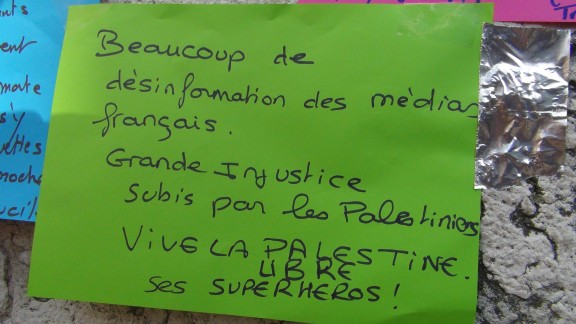 Beaucoup de
désinformation des médias
français.
Grande Injustice
subis par les Palestiniens
VIVE LA PALESTINE.
LIBRE
ses SUPERHEROS !
ent
mate
s'y